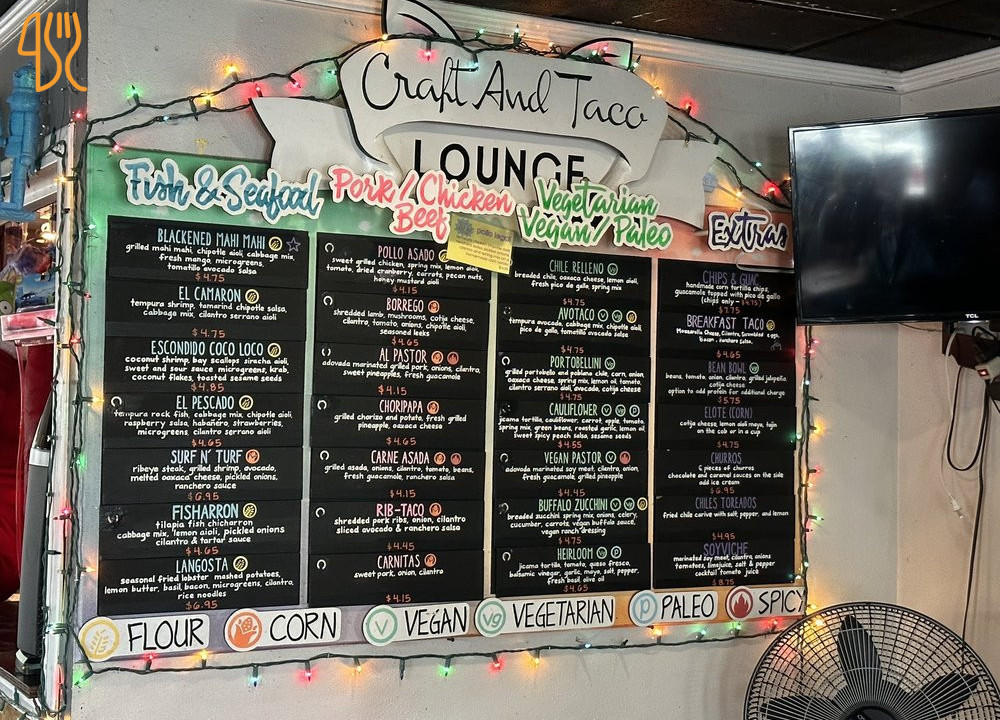 Craft And Taco
LOUNGE
Fish & Seafood
BLACKENED MAHI MAHI
grilled mahi mahi, chipotle aioli, cabbage mix,
fresh mango, microgreens,
tomatillo avocado salsa
$4.75
EL CAMARON
tempura shrimp, tamarind chipotle salsa,
cabbage mix, cilantro serrano aioli
$4.75
ESCONDIDO COCO LOCO
coconut shrimp, bay scallops siracha aioli,
sweet and sour sauce microgreens, krab,
coconut flakes, toasted sesame seeds
$4.85
EL PESCADO
tempura rock fish, cabbage mix, chipotle aioli,
raspberry salsa, habanero, strawberries,
microgreens, cilantro serrano aioli
$4.65
SURF N' TURF
ribeye steak, grilled shrimp, avocado,
melted oaxaca cheese, pickled onions,
ranchero sauce
$6.95
FISHARRON
tilapia fish chicharron
cabbage mix, lemon aioli, pickled onions
cilantro & tartar sauce
$4.65
LANGOSTA
seasonal fried lobster mashed potatoes,
lemon butter, basil, bacon, microgreens, cilantro,
rice noodles
$6.95
Pork / Chicken
Beef
POLLO ASADO
sweet grilled chicken, spring mix, lemon aioli,
tomato, dried cranberry, carrots, pecan nuts,
honey mustard aioli
$4.15
BORREGO
shredded lamb, mushrooms, cotija cheese,
cilantro, tomato, onions, chipotle aioli,
seasoned leeks
$4.65
AL PASTOR
adovada marinated grilled pork, onions, cilantro,
sweet pineapples, fresh guacamole
$4.15
CHORIPAPA
grilled chorizo and potato, fresh grilled
pineapple, oaxaca cheese
$4.65
CARNE ASADA
grilled asada, onions, cilantro, tomato, beans,
fresh guacamole, ranchero salsa
$4.15
RIB-TACO
shredded pork ribs, onion, cilantro
sliced avocado & ranchero salsa
$4.45
CARNITAS
sweet pork, onion, cilantro
$4.15
Vegetarian
Vegan / Paleo
CHILE RELLENO
breaded chile, oaxaca cheese, lemon aioli,
fresh pico de gallo, spring mix
$4.75
AVOTACO
tempura avocado, cabbage mix, chipotle aioli,
pico de gallo, tomatillo avocado salsa
$4.75
PORTOBELLINI
grilled portobello and poblano chile, corn, onion,
oaxaca cheese, spring mix, lemon oil, tomato,
cilantro serrano aioli, avocado, cotija cheese
$4.75
CAULIFLOWER
jicama tortilla, cauliflower, carrot, apple, tomato,
spring mix, green beans, roasted garlic, lemon oil,
sweet spicy peach salsa, sesame seeds
$4.55
VEGAN PASTOR
adovada marinated soy meat, cilantro, onion,
fresh guacamole, grilled pineapple
$4.45
BUFFALO ZUCCHINI
breaded zucchini spring mix, onions, celery,
cucumber, carrots, vegan buffalo sauce,
vegan ranch dressing
$4.75
HEIRLOOM
jicama tortilla, tomato, queso fresco,
balsamic vinegar, garlic, mayo, salt, pepper,
fresh basil, olive oil
$4.65
Extras
CHIPS & GUAC
handmade corn tortilla chips,
guacamole topped with pico de gallo
(chips only -
$7.75
BREAKFAST TACO
Mozzarella Cheese, Cilantro, Scrambled eggs,
bacon, ranchero salsa,
$4.65
BEAN BOWL
beans, tomato, onion, cilantro, grilled jalapeño,
cotija cheese
option to add protein for additional charge
$5.75
ELOTE (CORN)
cotija cheese, lemon aioli mayo, tajin
on the cob or in a cup
$4.75
CHURROS
6 pieces of churros
chocolate and caramel sauces on the side
add ice cream
$6.95
CHILES TOREADOS
fried chile caribe with salt, pepper, and lemon
$4.95
SOYVICHE
marinated soy meat, cilantro, onions
tomatoes, limejuice, salt & pepper
cocktail tomato juice
$8.75
FLOUR
CORN
V VEGAN
vg VEGETARIAN
P PALEO
SPICY
TCL